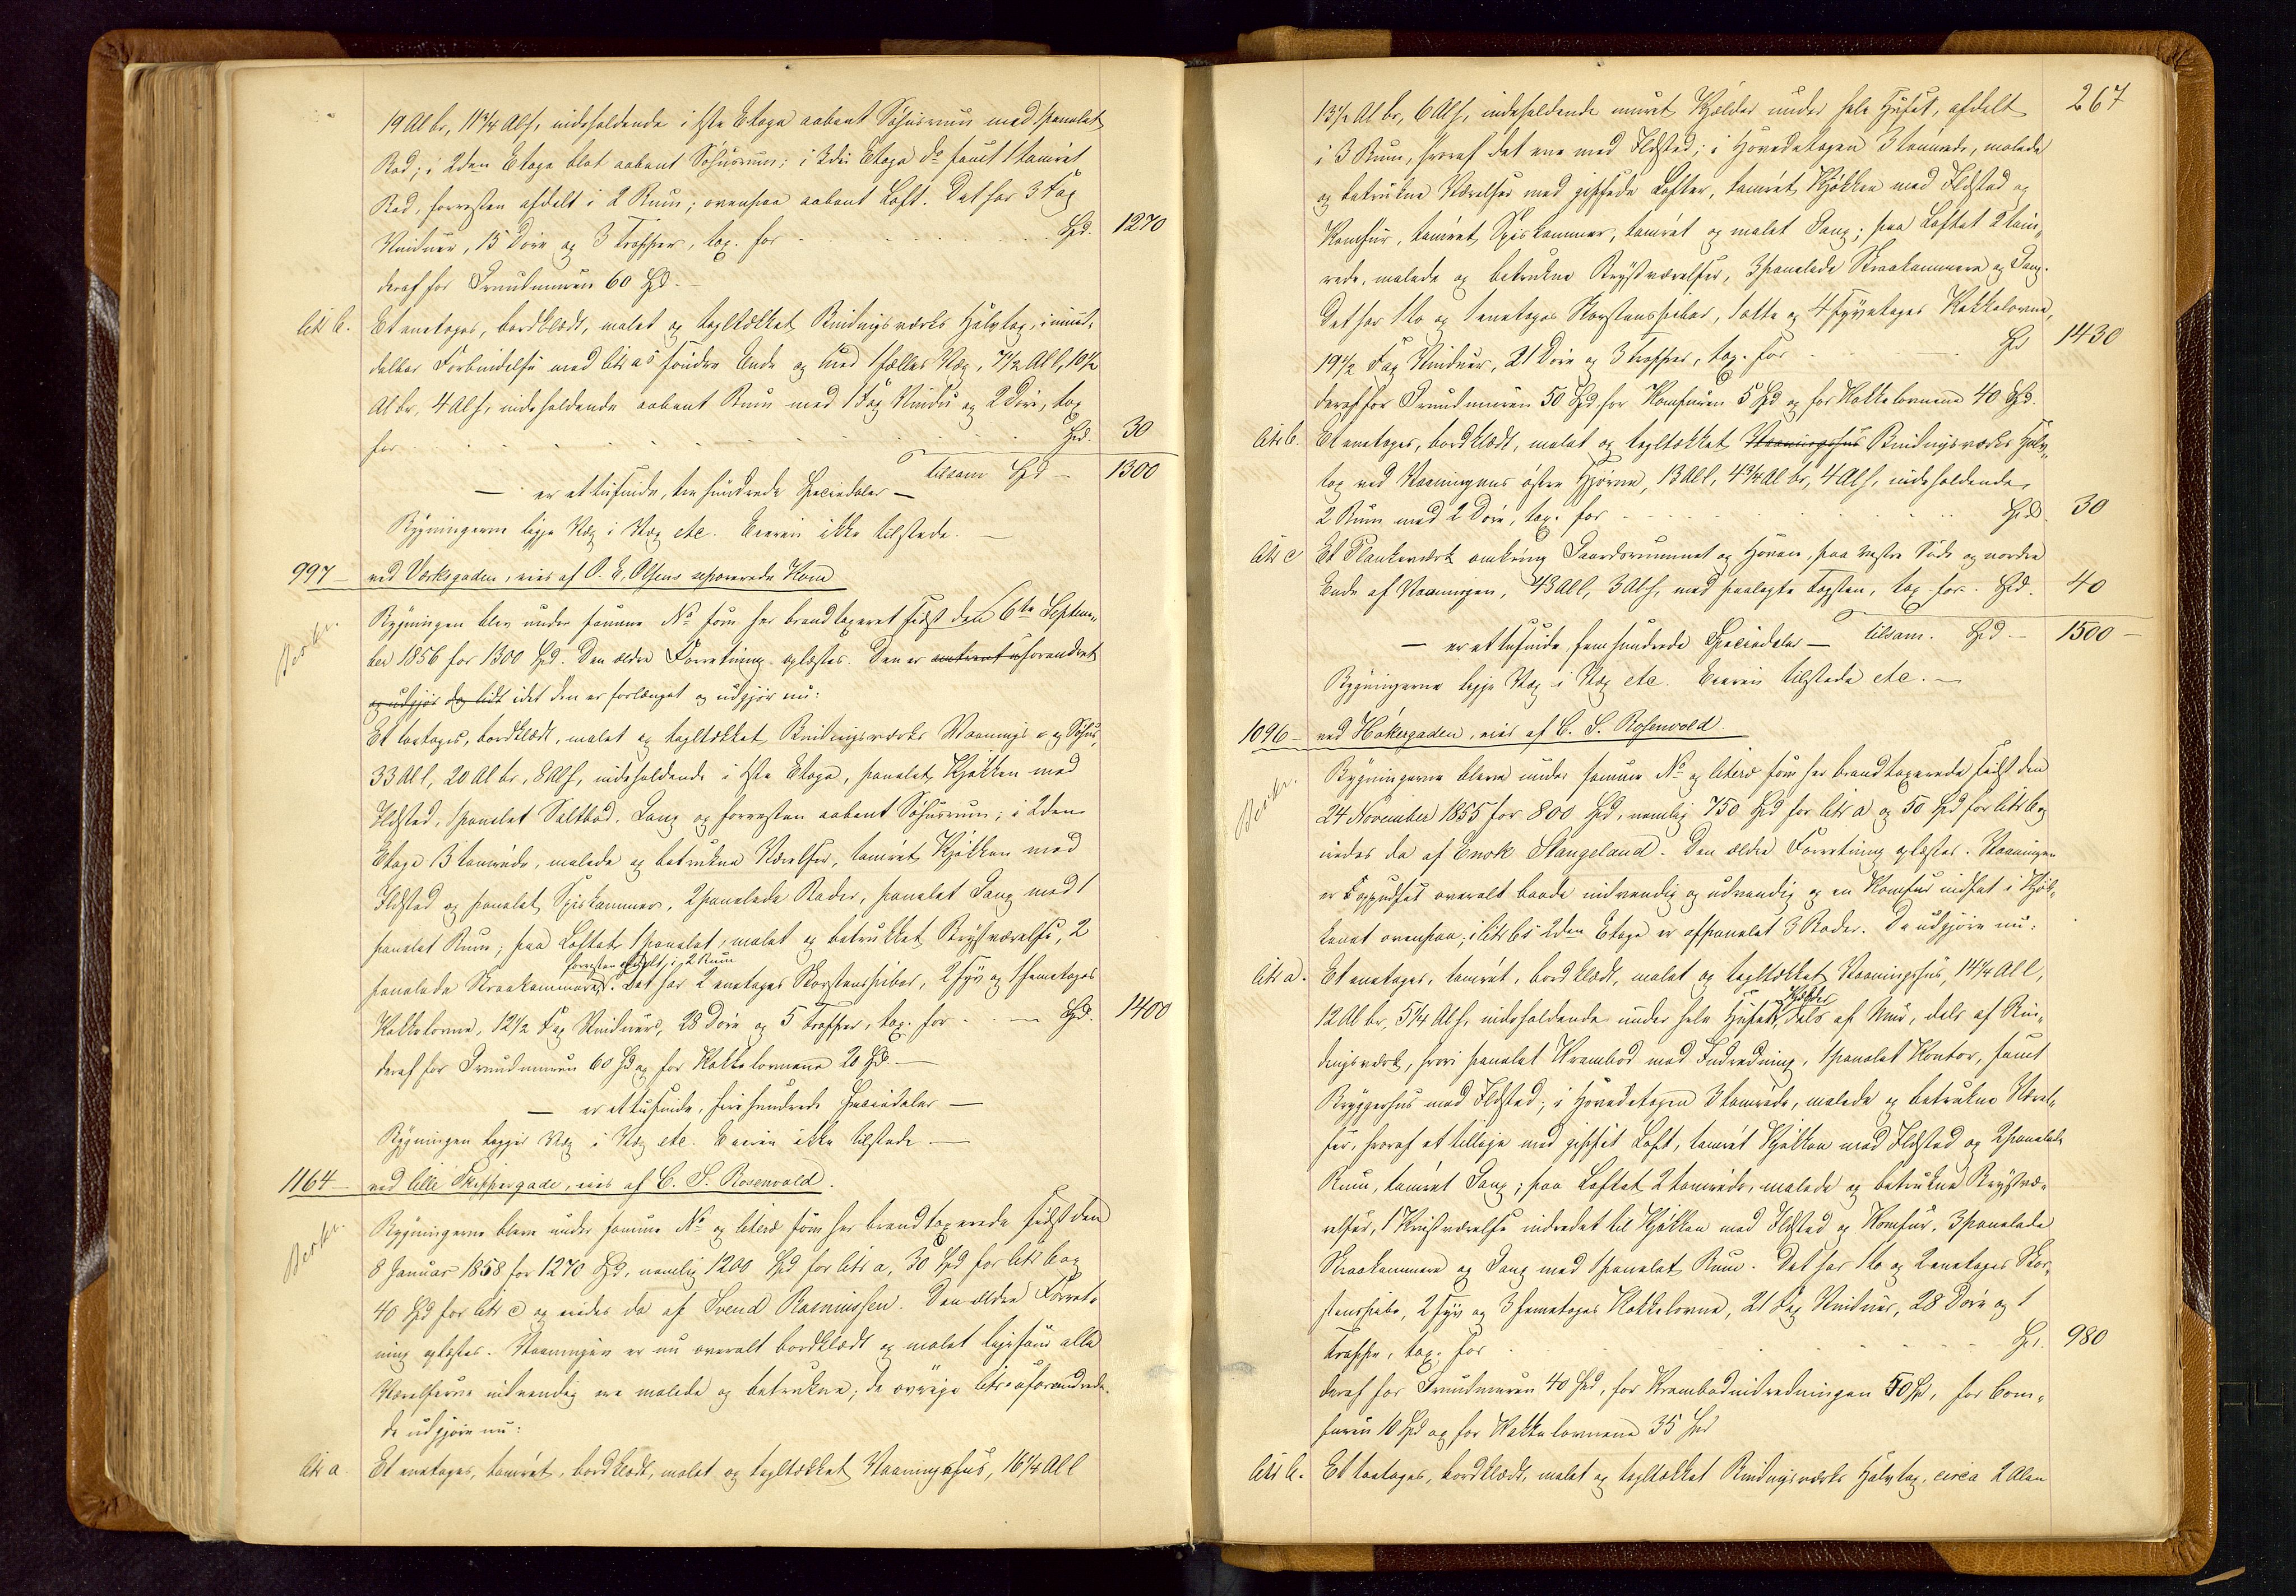 19 Al br, 11 3/4 Al h, indeholdende i 1ste Etage aabent Söhusrum med panelet
Bod; i 2den Etage blot aabent Söhusrum; i 3die Etage do samt 1 tömret
Bod, forresten afdelt i 2 Rum; ovenpaa aabent Loft. Det har 3 Fag
Vinduer, 15 Döre og 3 Trapper, tax. for Spd. 1270
deraf for Grundmuren 60 Spd.
Litr b. Et enetages, bordklædt, malet og tegltækket Bindingsværks Halvtag, i umid-
delbar Forbindelse med litr a's söndre Ende og med fælles Væg, 7 1/2 Al l, 10 1/2
Al br, 4 Al h, indeholdende aabent Rum med 1 Fag Vindu og 2 Döre, tax
for Spd. 30
tilsam Spd — 1300
— er ettusinde, tre hundrede Speciedaler —
Bygningerne ligge Væg i Væg etc. Eieren ikke tilstede. —
997 — ved Værksgaden, eies af O. E. Olsens separerede Kone
Beskr.
Bygningen blev under samme No som her brandtaxeret sidst den 6te Septem-
ber 1856 for 1300 Spd. Den ældre Forretning oplæstes. Den er omtrent uforandret
og udgjör dog lidt idet den er forlænget og udgjör nu:
Et toetages, bordklædt, malet og tegltækket Bindingsværks Vaanings- og Söhus,
33 Al l, 20 Al br, 8 Al h, indeholdende i 1ste Etage, panelet Kjökken med
Ildsted, 1 panelet Saltbod, Gang og forresten aabent Söhusrum; i 2den
Etage 3 tömrede, malede og betrukne Værelser, tömret Kjökken med
Ildsted og panelet Spiskammer, 2 panelede Boder, panelet Gang med 1
panelet Rum; paa Loftet 1 panelet, malet og betrukket Brystværelse, 2
forresten afdelt i 2 Rum
panelede Skraakammere. Det har 2 enetages Skorstenspiber, 2 Fyr og 1 femetages
Kakkelovne, 12 1/2 Fag Vinduer, 28 Döre og 5 Trapper, tax. for — Spd. 1400
deraf for Grundmuren 60 Spd og for Kakkelovnene 20 Spd. —
— er ettusinde, fire hundrede Speciedaler —
Bygningen ligger Væg i Væg etc. Eieren ikke tilstede. —
1164 — ved lille Skippergade, eies af C. S. Rosenvold.
Beskr.
Bygningerne bleve under samme No og literæ som her brandtaxerede sidst den
8 Januar 1858 for 1270 Spd, nemlig 1200 Spd for litr a, 30 Spd for litr b og
40 Spd for litr c og eiedes da af Svend Rasmussen. Den ældre Forret-
ning oplæstes. Vaaningen er nu overalt bordklædt og malet ligesom alle
Værelserne indvendig ere malede og betrukne; de övrige litr uforandrede.
de udgjöre nu:
Litr a. Et enetages, tömret, bordklædt, malet og tegltækket Vaaningshus, 16 1/4 Al l
267
13 1/2 Al br, 6 Al h, indeholdende muret Kjælder under hele Huset, afdelt
i 3 Rum, hvoraf det ene med Ildsted; i Hovedetagen 3 tömrede, malede
og betrukne Værelser med gipsede Lofter, tömret Kjökken med Ildsted og
Komfur, tömret Spiskammer, tömret og malet Gang; paa Loftet 2 töm-
rede, malede og betrukne Brystværelser, 3 panelede Skraakammere og Gang.
Det har 1 to og 1 enetages Skorstenspiber, 1 otte og 4 fyretages Kakkelovne,
19 1/2 Fag Vinduer, 21 Döre og 3 Trapper, tax. for Spd 1430
deraf for Grundmuren 50 Spd for Komfuren 5 Spd og for Kakkelovnene 40 Spd.
Litr b. Et enetages, bordklædt, malet og tegltækket Vaaningshus Bindingsværks Halv-
tag ved Vaaningens östre Hjörne, 13 Al l, 4 3/4 Al br, 4 Al h, indeholdende
2 Rum med 2 Döre, tax. for Spd 30
Litr c Et Plankeværk omkring Gaardsrummet og Haven, paa vestre Side og nordre
Ende af Vaaningen, 43 Al l, 3 Al h, med paalagte Tagsten, tax for. Spd. 40
— er ettusinde, fem hundrede Speciedaler — tilsam. Spd — 1500 —
Bygningerne ligge Væg i Væg etc. Eieren tilstede etc. —
1096 — ved Hökergaden, eies af C. S. Rosenvold.
Beskr.
Bygningerne bleve under samme No og literæ som her brandtaxerede sidst den
24 November 1855 for 800 Spd, nemlig 750 Spd for litr a og 50 Spd for litr b og
eiedes da af Enok Stangeland. Den ældre Forretning oplæstes. Vaaningen
er oppudset overalt baade indvendig og udvendig og en Komfur indsat i Kjök-
kenet ovenpaa; i litr b's 2den Etage er afpanelet 3 Boder. De udgjöre nu:
Litr a. Et enetages, tömret, bordklædt, malet og tegltækket Vaaningshus, 14 1/4 Al l,
Kjælder
12 Al br, 5 1/4 Al h, indeholdende under hele Huset, dels af Mur, dels af Bin-
dingsværk, hvori panelet Krambod med Indredning, 1 panelet Kontor, samt
Bryggerhus med Ildsted; i Hovedetagen 3 tömrede, malede og betrukne Værel-
ser, hvoraf et tillige med gipset Loft, tömret Kjökken med Ildsted og 2 panelede
Rum, tömret Gang; paa Loftet 2 tömrede, malede og betrukne Brystvæ-
relser, 1 Kvistværelse indredet til Kjökken med Ildsted og Komfur, 3 panelede
Skraakammere og Gang med 1 panelet Rum. Det har 1 to og 2 enetages Skor-
stenspibe, 2 Fyr og 3 femetages Kakkelovne, 21 Fag Vinduer, 28 Döre og 1
Trappe, tax. for Spd. 980
deraf for Grundmuren 40 Spd, for Krambodindredningen 50 Spd, for Com-
furen 10 Spd og for Kakkelovnene 35 Spd
Litr b. Et toetages, bordklædt, malet og tegltækket Bindingsværks Halvtag, circa 2 Alen